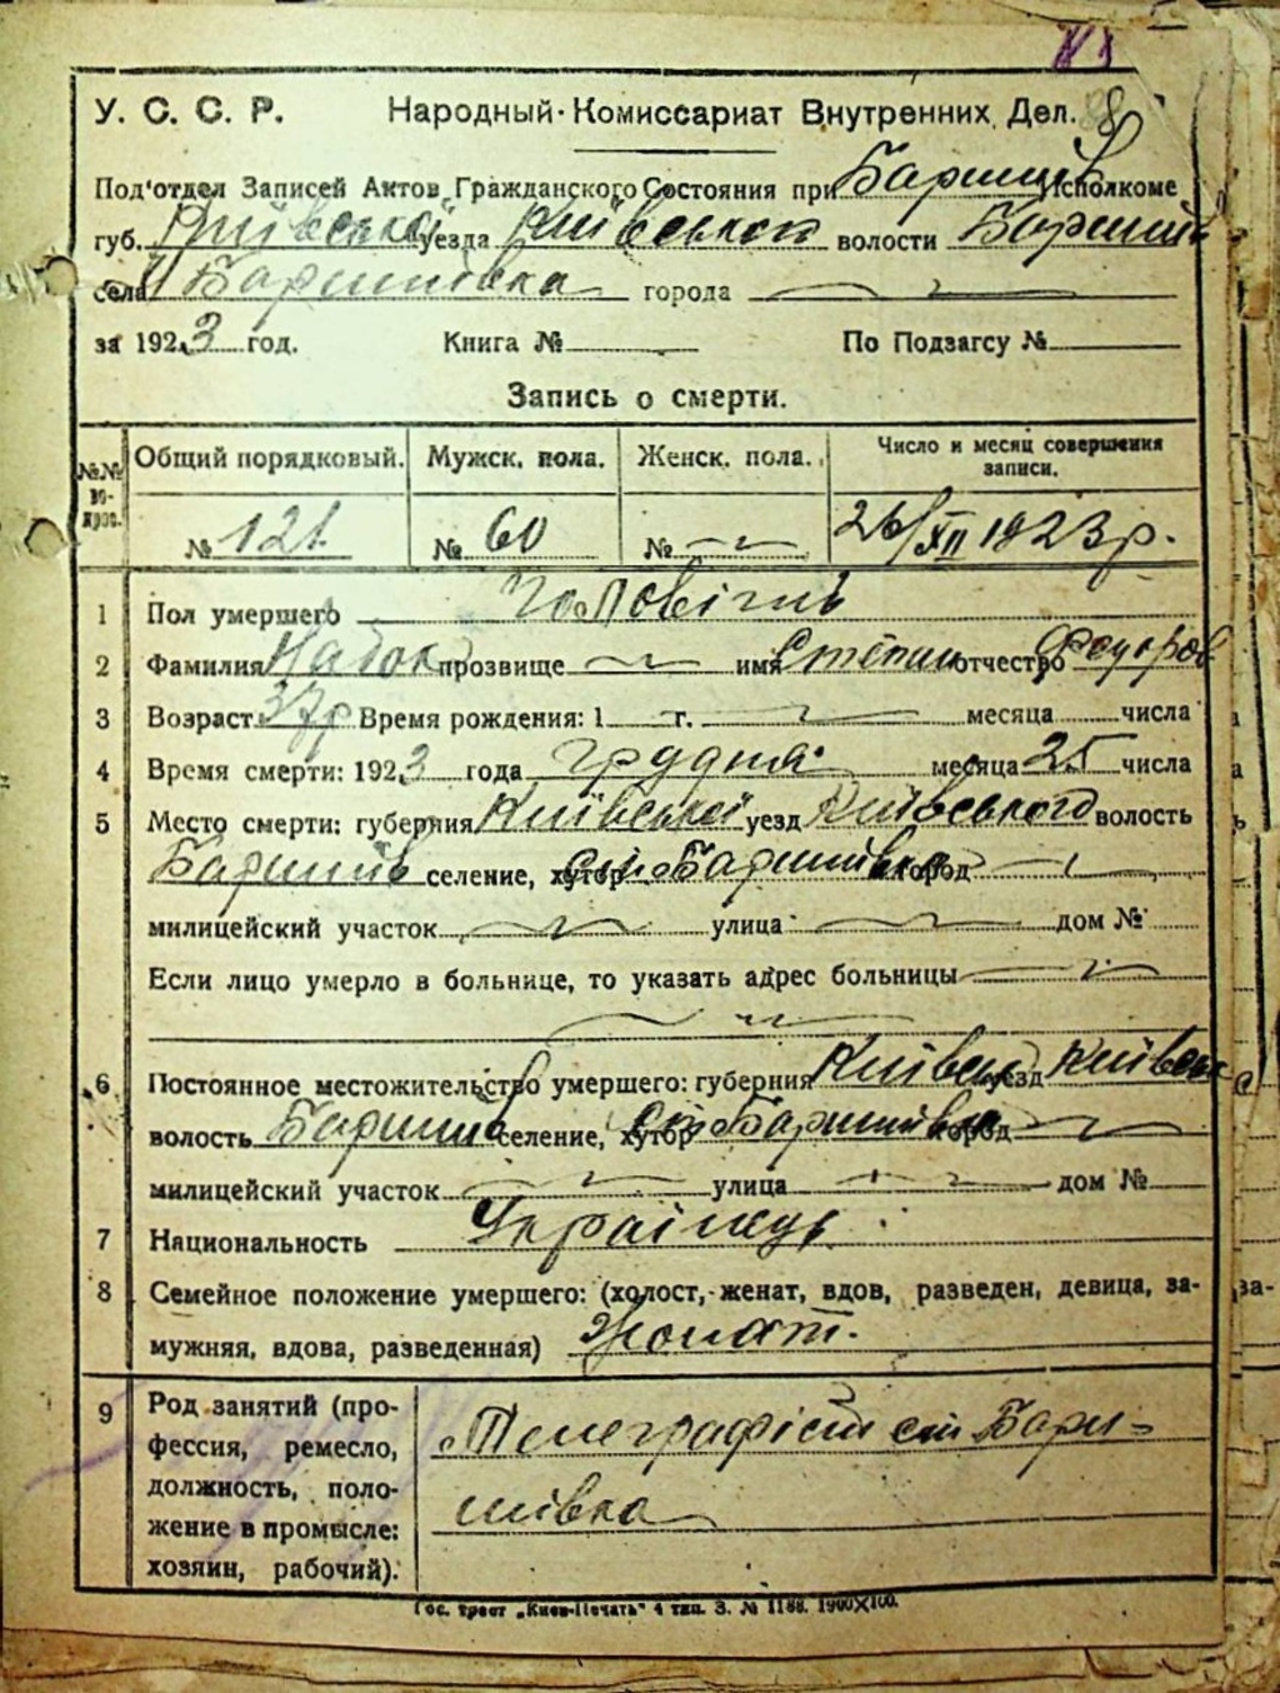 У. С. С. Р. Народный Комиссариат Внутренних Дел.
Под'отдел Записей Актов Гражданского Состояния при Баришів Исполкоме
губ. Київської уезда Київської волости Баришів
села Баришівка города
за 1923 год. Книга № По Подзагсу №
Запись о смерти.
№№ вопрос. Общий порядковый. Мужск. пола. Женск. пола. Число и месяц совершения записи.
№ 121 № 60 № 26/XII 1923 р.
1 Пол умершего Чоловічів
2 Фамилия Набок прозвище имя Степан отчество Федоров
3 Возраст 37 р Время рождения: 1 г. месяца числа
4 Время смерти: 1923 года грудня месяца 25 числа
5 Место смерти: губерния Київської уезд Київського волость
Баришів селение, хутор ст. Баришівка город
милицейский участок улица дом №
Если лицо умерло в больнице, то указать адрес больницы
6 Постоянное местожительство умершего: губерния Київськ уезд Київськ
волость Баришів селение, хутор ст. Баришівка город
милицейский участок улица дом №
7 Национальность Українець
8 Семейное положение умершего: (холост, женат, вдов, разведен, девица, за-
мужняя, вдова, разведенная) Жонат.
9 Род занятий (про-
фессия, ремесло,
должность, поло-
жение в промысле:
хозяин, рабочий).
Телеграфіст ст Бари-
шівка
Гос. трест „Киев-Печать" 4 тип. З. № 1188. 1900×100.